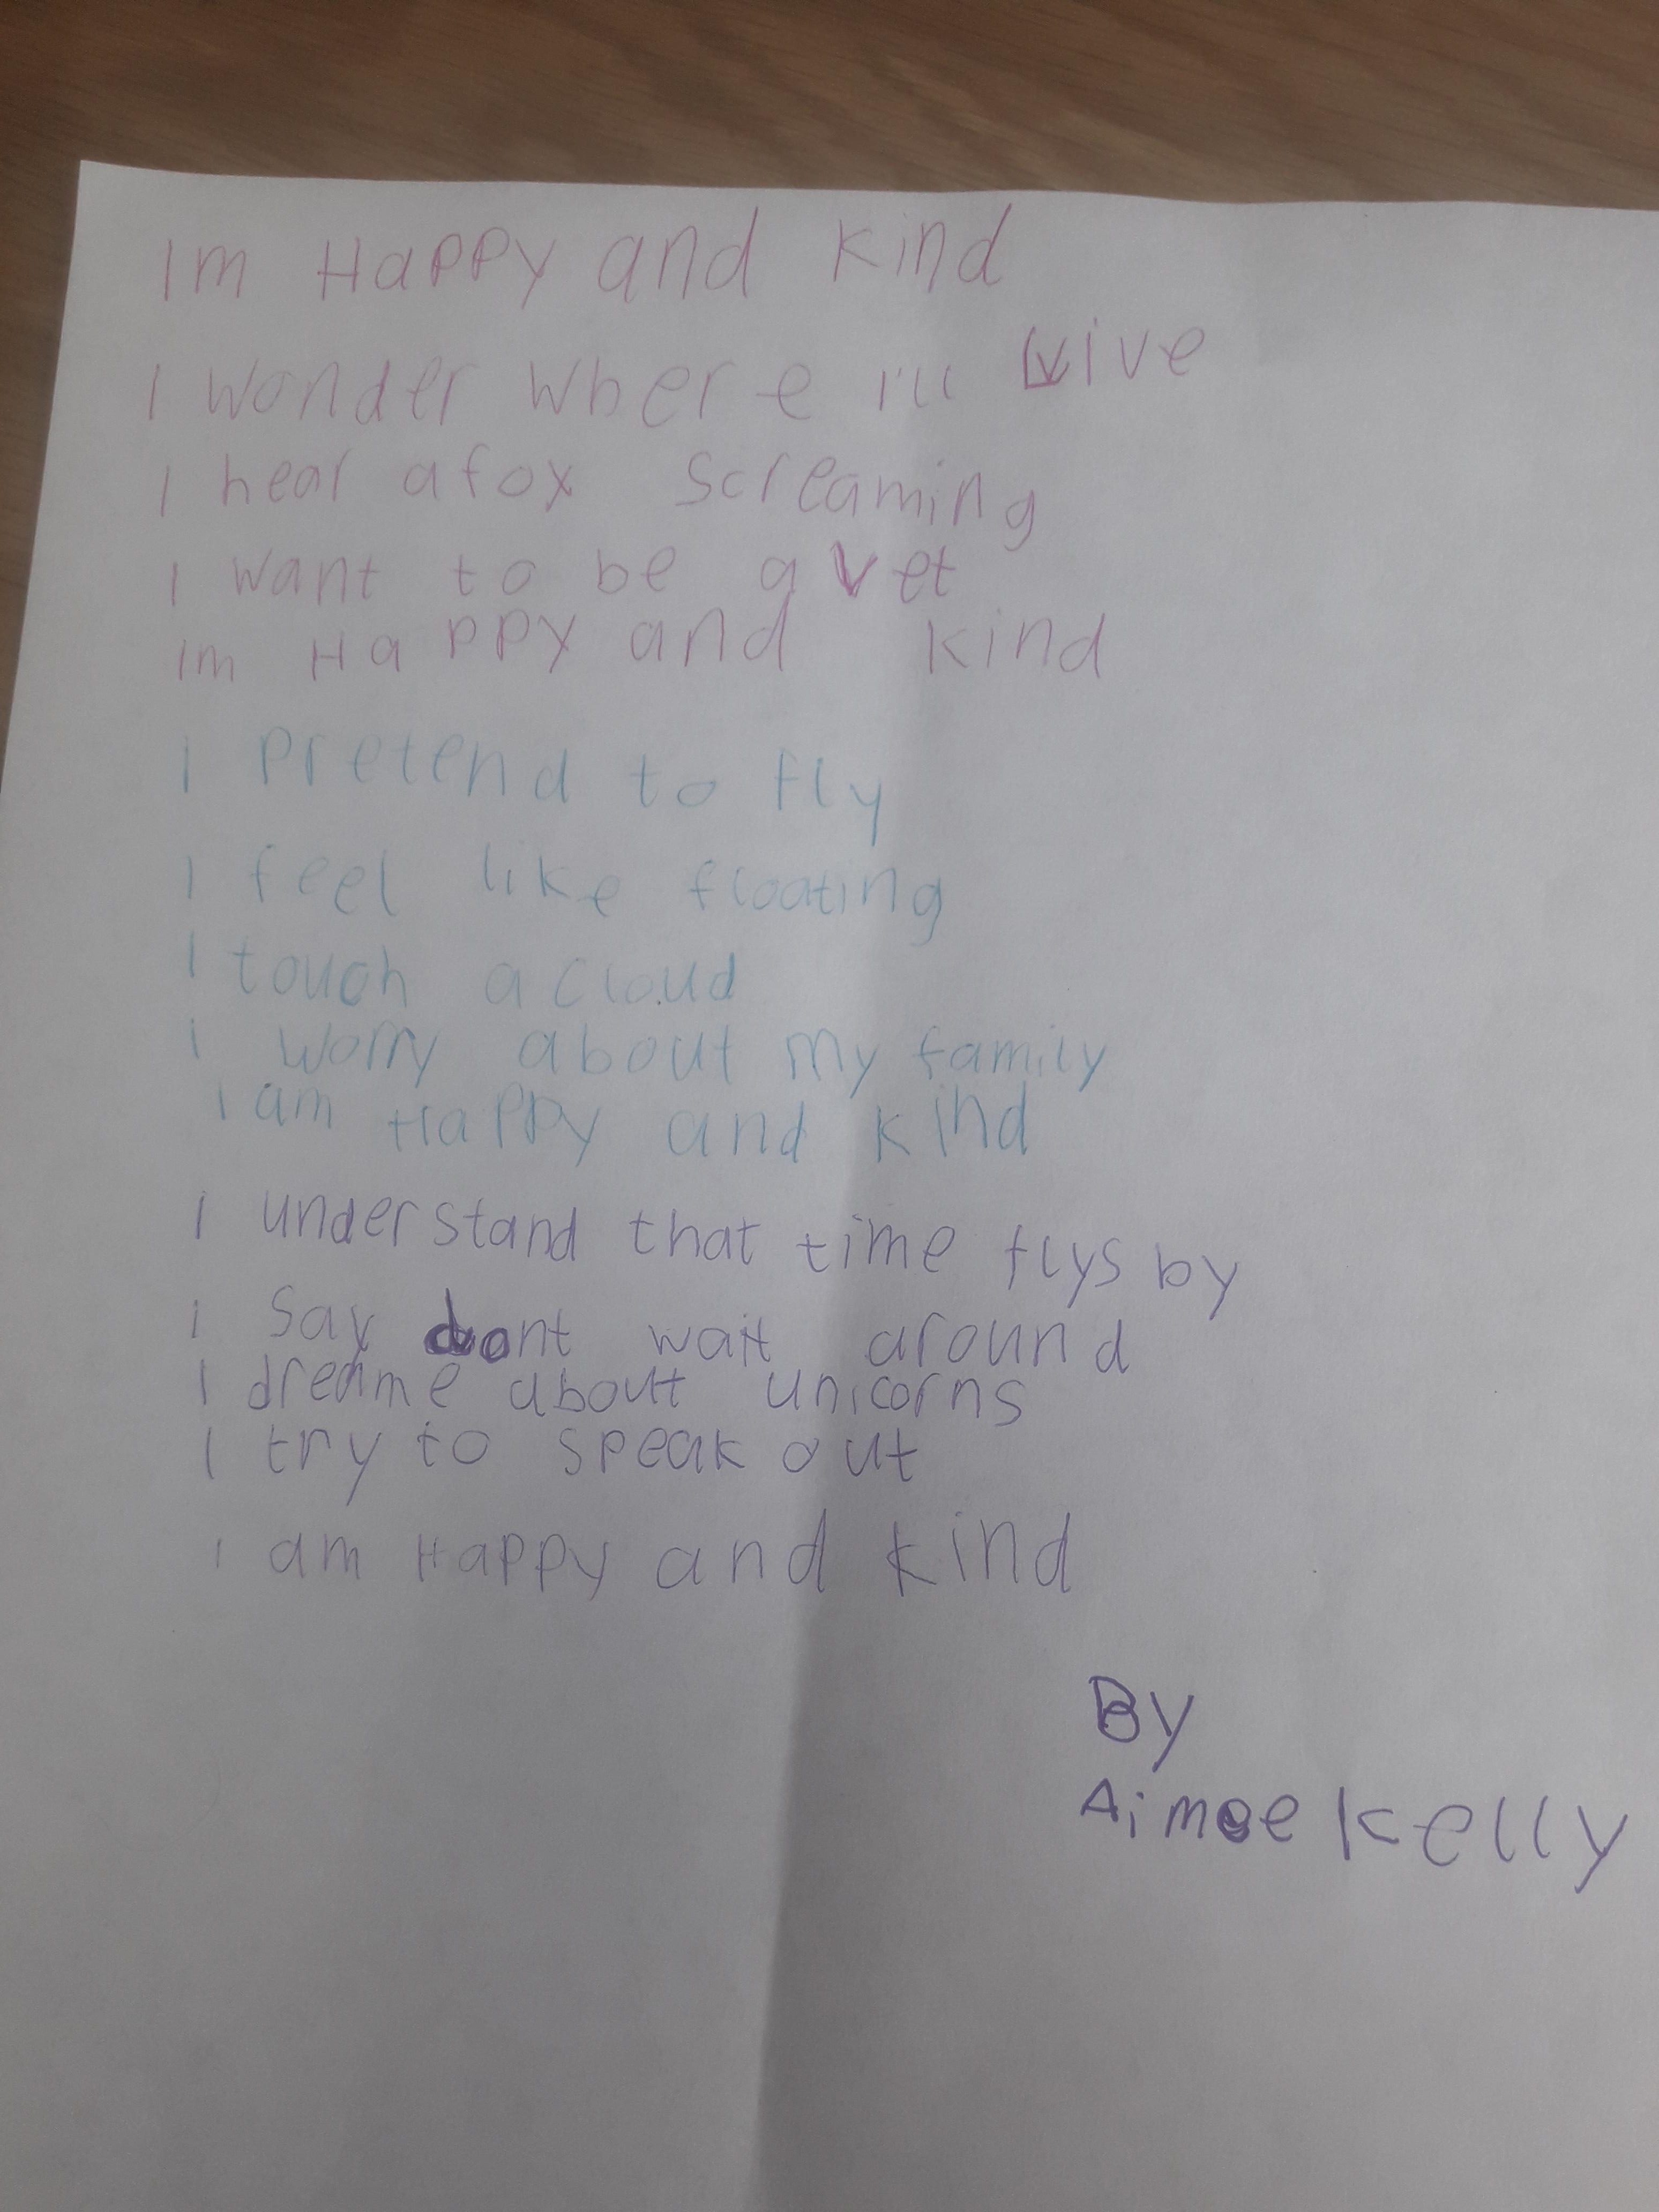 Im Happy and kind
I wonder where i'll live
I hear a fox screaming
I want to be a vet
Im Happy and kind
I Pretend to fly
I feel like floating
I touch a cloud
I worry about my family
I am Happy and kind
I understand that time flys by
I say dont wait around
I dreame about unicorns
I try to speak out
I am Happy and kind
By
Aimee Kelly